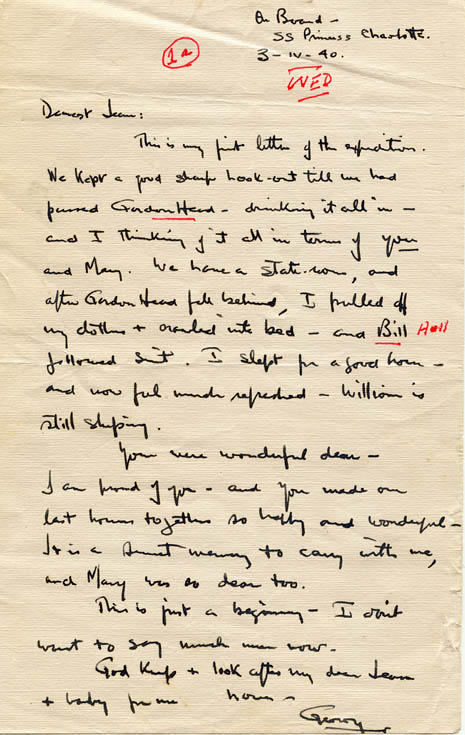 On Board -
SS Princess Charlotte.
1a
3 - IV - 40.
WED
Dearest Jean:
This is my first letter of the expedition.
We kept a good sharp look-out till we had
passed Gordon Head - drinking it all in -
and I thinking of it all in terms of you
and Mary. We have a state-room, and
after Gordon Head fell behind, I pulled off
my clothes + crawled into bed - and Bill Hall
followed suit. I slept for a good hour -
and now feel much refreshed - William is
still sleeping.
You were wonderful dear -
I am proud of you - and you made our
last hours together so happy and wonderful -
It is a sweet memory to carry with me,
and Mary was so dear too.
This is just a beginning - I don't
want to say much more now.
God keep + look after my dear Jean
+ baby for me